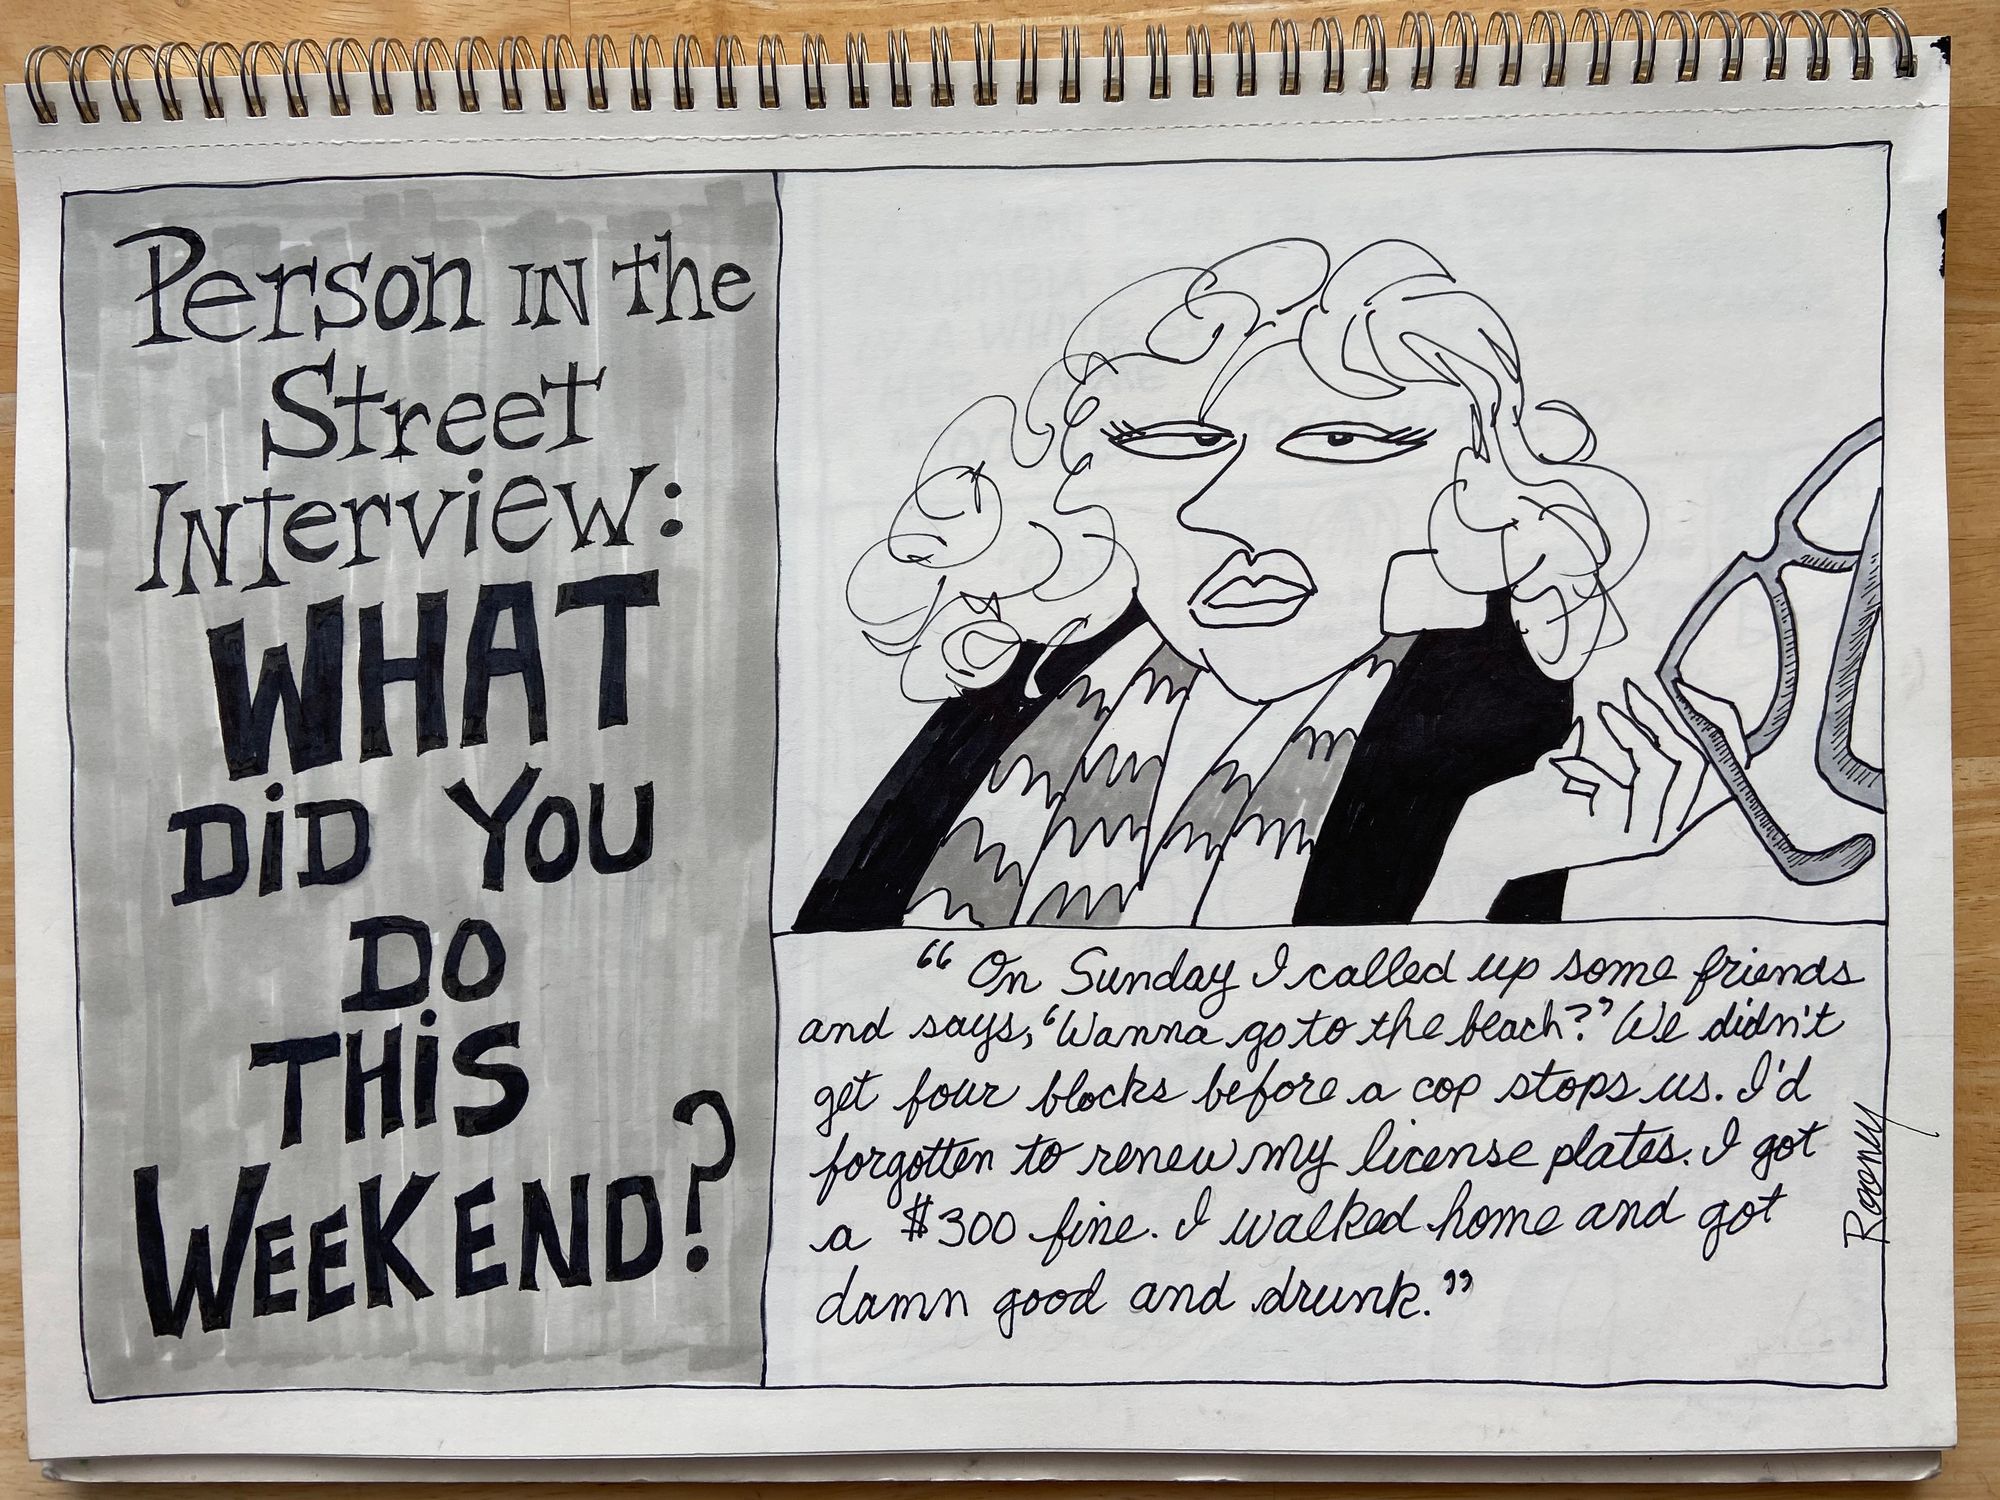 Person in the
Street
Interview:
WHAT
DiD YOU
DO
THiS
WEEKEND?
“On Sunday I called up some friends
and says, ‘Wanna go to the beach?’ We didn't
get four blocks before a cop stops us. I'd
forgotten to renew my license plates. I got
a $300 fine. I walked home and got
damn good and drunk.”
Rooney